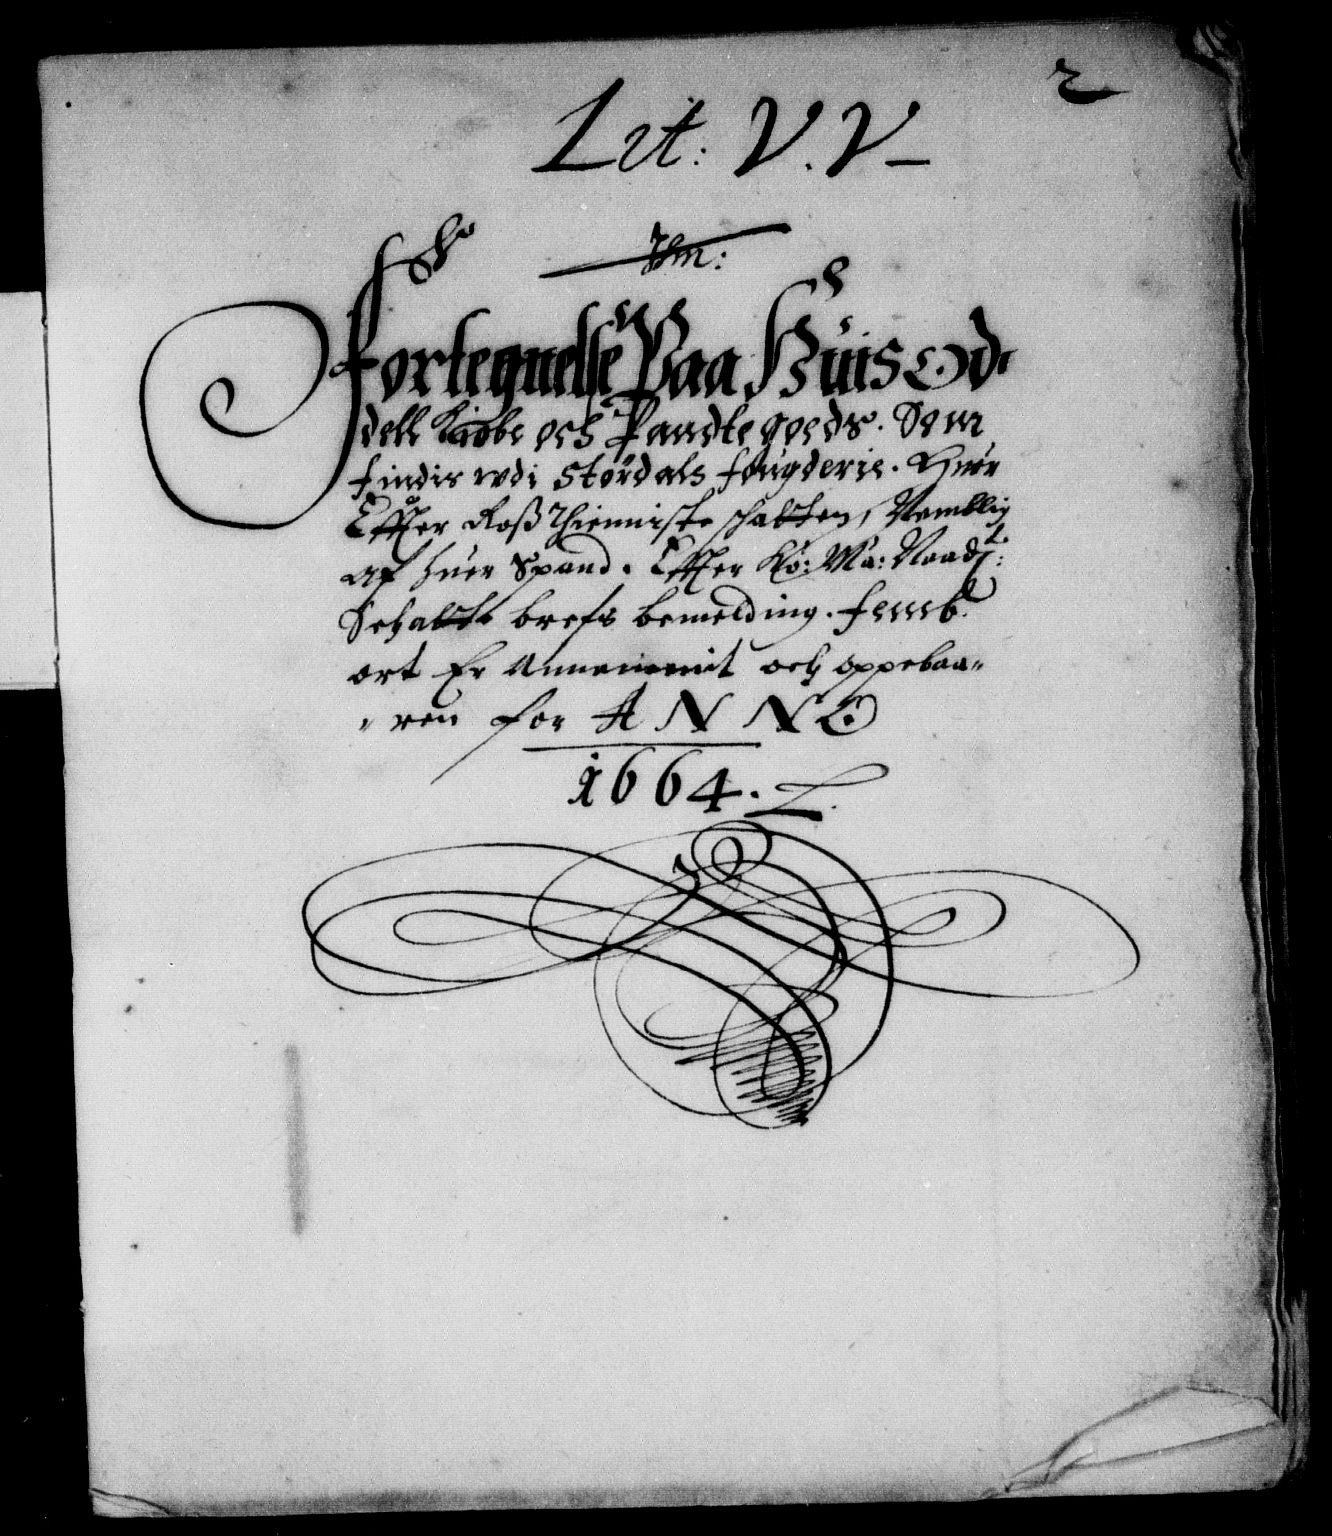 2
Lit: V. V
Fortegnelse Paa Huis Od-
dell Kiøbe och Pandte goeds. Som
findis udi Størdals fougderie. Huor
Effter Roß thienniste schatten, Nemblig
Aff huer Spand. Effter Ko: Ma: Naadst:
Schatte brefs bemelding. femb
ort Er Annammit och oppebaa-
ren for ANNO
1664.